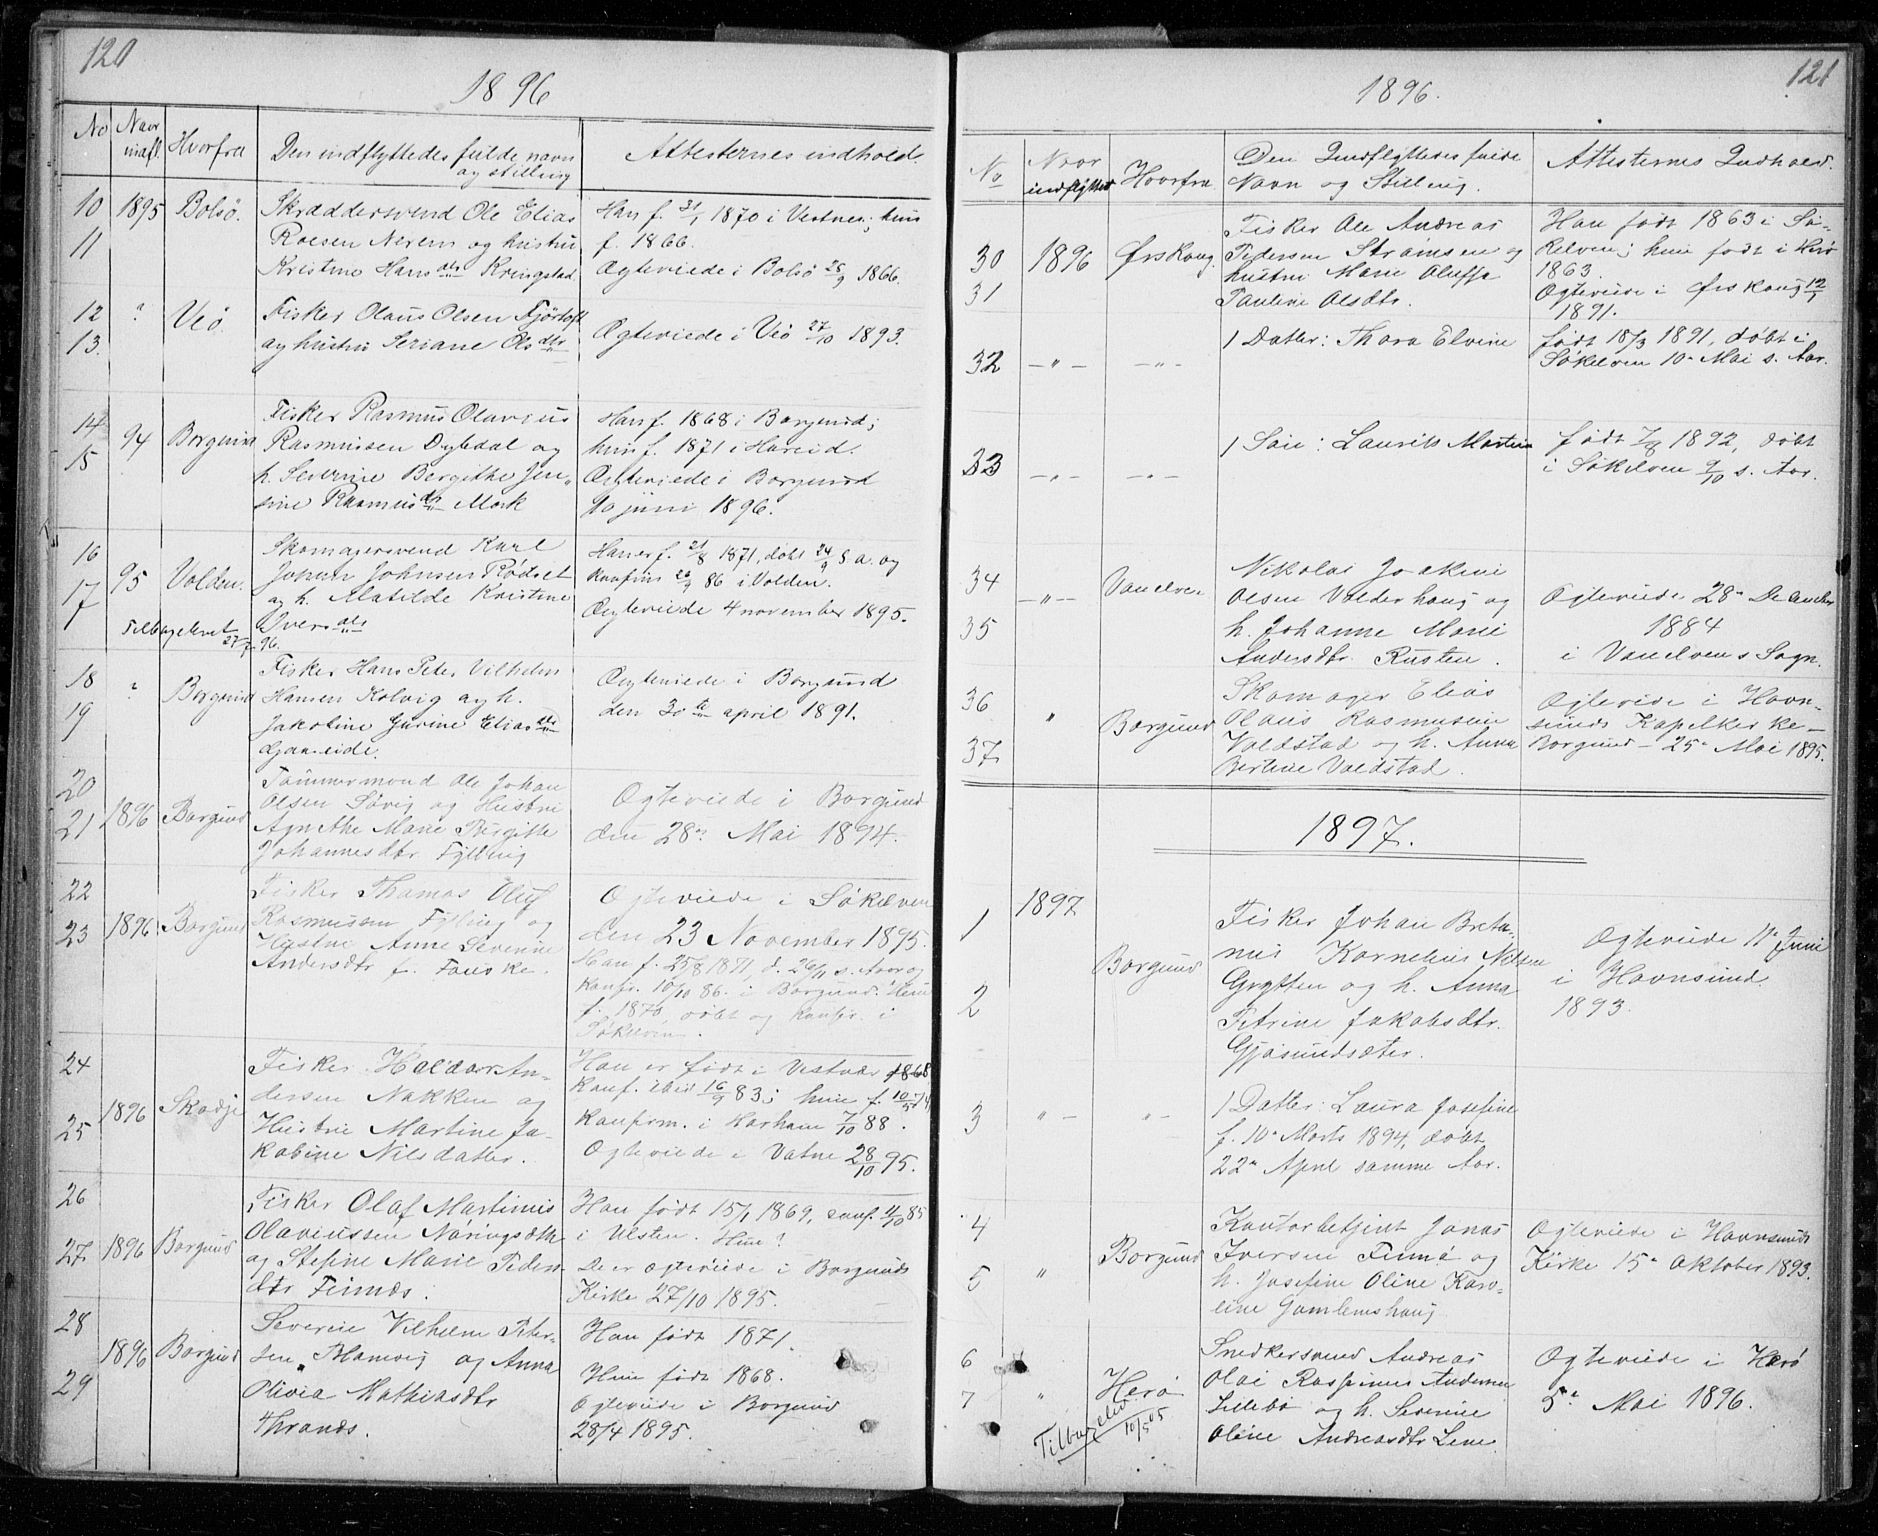 120
1896
No Naar indfl. Hvorfra Den indflyttedes fulde navn og stilling Attesternes indhold.
10 1895 Bolsø. Skræddersvend Ole Elias Han f. 31/1 1870 i Vestnes; hun
11 Roesen Nerem og hustru f. 1866.
Kristine Hansdtr Kringstad Ægteviede i Bolsø 28/9 1866.
12 " Veø. Fisker Olaus Olsen Fjørtoft Ægteviede i Veø 27/10 1893.
13. og hustru Seriane Olsdtr
14 94 Borgund Fisker Rasmus Olavius Han f. 1868 i Borgund;
15 Rasmussen Dybdal og hun f. 1871 i Hareid.
h. Severine Bergithe Jen- Ægteviede i Borgund
sine Rasmusdtr Mork 10 juni 1896.
16 95 Volden. Skomagersvend Karl Han er f. 21/8 1871, døbt 24/9 s. a. og
17 Johan Johnsen Rødset konfirm. 26/9 86 i Volden.
og h. Matilde Kristine Ægteviede 4 november 1895.
Tilbageleveret 27/7 96. Iversdtr
18 " Borgund Fisker Hans Peter Vilhelm Ægteviede i Borgund
19 Hansen Kolvig og h. den 30te april 1891.
Jakobine Gurine Eliasdtr
Gjøneeide.
20 1896 Borgund Tømmermand Ole Johan
21 Olsen Søvig og Hustru Ægteviede i Borgund
Agnethe Marie Birgitte den 28de Mai 1894.
Johannesdtr. Fylling
22 1896 Borgund Fisker Thomas Oluf Ægteviede i Søkelven
23 Rasmussen Fylling og den 23 November 1895.
Hustru Anne Severine Han f. 25/8 1871, d. 26/11 s. Aar og
Andersdtr f. Fauske. Konfir. 10/10 86. i Borgund. Hun
f. 1870, døbt og Konfir. i
Søkelven.
24 1896 Skodje Fisker Haldor An- Han er født i Vestnæs 1868
25 dersen Nakken og Konf. ibid 16/9 83; hun f. 10/5 74
Hustru Martine Ja- Konfirm. i Harham 7/10 88.
kobine Nilsdatter. Ægteviede i Vatne 28/10 95.
26 1896 Borgund Fisker Olaf Martinus Han født 15/1 1869, conf. 4/10 85
27. Olaviussen Nøringseth i Ulsten. Hun?
og Stefine Marie Peders- De er ægteviede i Borgunds
dtr Finnes. Kirke 27/10 1895.
28 1896 Borgund Severin Vilhelm Peter- Han født 1871.
29 sen Blomvig og Anna Hun født 1868.
Olivia Mathiasdtr Ægteviede i Borgund
Thrands. 28/4 1895.
121
1896.
No Naar indflyttet Hvorfra Den Indflyttedes fulde Navn og Stilling. Attesternes Indhold.
30 1896 Ørskoug. Fisker Ole Andreas Han født 1863 i Sø-
31 Pedersen Strømsen og kelven; hun født i Herø
hustru Marie Oluffa 1863.
Pauline Olsdtr. Ægteviede i Ørskoug 12/1
1891.
32 -"- -"- 1 Datter: Thora Elvine født 18/3 1891, døbt i
Søkelven 10de Mai s. Aar.
33 -"- -"- 1 Søn: Laurits Martin født 7/8 1892, døbt
i Søkelven 9/10 s. Aar.
34 -"- Vanelven Nikolai Joakim
35 Olsen Valderhaug og Ægteviede 28de December
h. Johanne Marie 1884
Andersdtr. Rusten. i Vanelvens Sogn.
36 " Borgund Skomager Elias Ægteviede i Havn-
37. Olaus Rasmussen sunds Kapelkirke
Valdstad og h. Anna Borgund - 25de Mai 1895.
Bertine Valdstad.
1897.
1 1897 Borgund Fisker Johan Bretu- Ægteviede 11te Juni
2 nius Kornelius Nilsen i Havnsund
Grytten og h. Anna 1893.
Petrine Jakobsdtr.
Gjøsundsæter.
3 "- "- 1 Datter: Laura Josefine
f. 10de Marts 1894, døbt
22de April samme Aar.
4 " Borgund Kontorbetjent Jonas Ægteviede i Havnsunds
5 Iversen Finnø og Kirke 15de Oktober 1893.
h. Josefine Oline Karo-
line Gamlemshaug
6 " Herø Snedkersvend Andreas Ægteviede i Herø
7 Olai Raspinus Andersen 5te Mai 1896.
Lillebø og h. Severine
Oline Andreasdtr Lene
Tilbagelev. 10/5 05